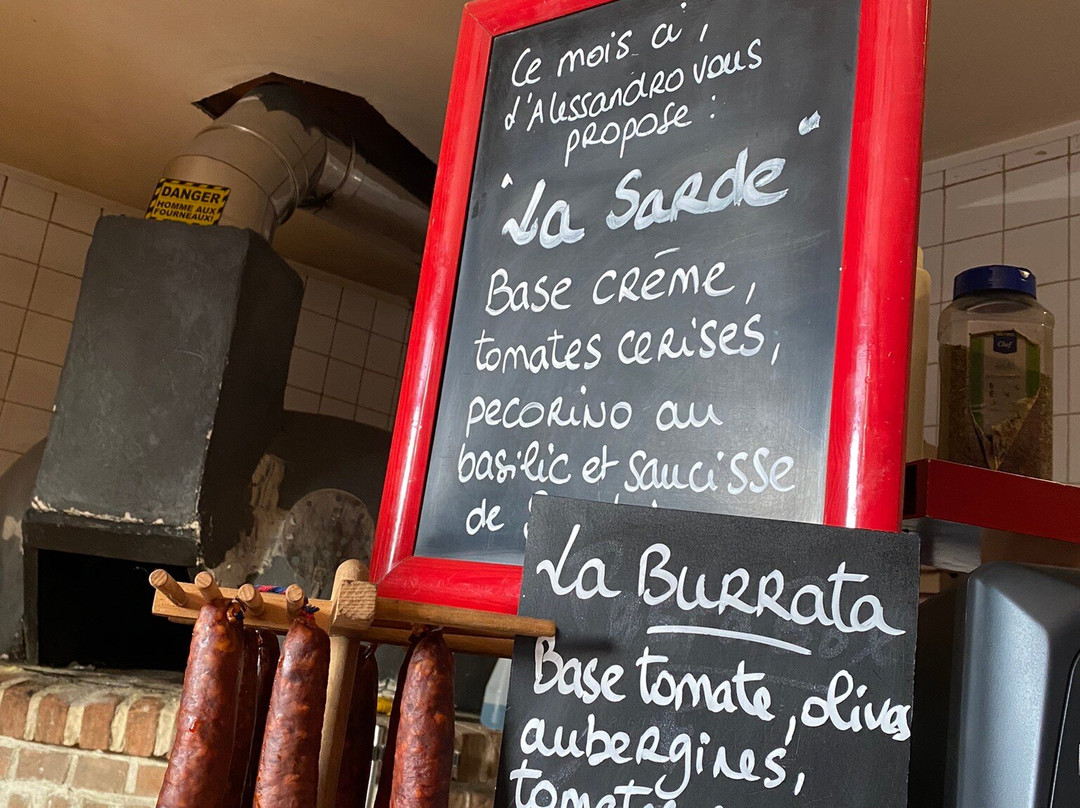 DANGER
HOMME AUX
FOURNEAUX!
Ce mois ci,
d'Alessandro vous
propose :
"La Sarde"
Base crème,
tomates cerises,
pecorino au
basilic et saucisse
de
La Burrata
Base tomate, olives
aubergines,
Chef